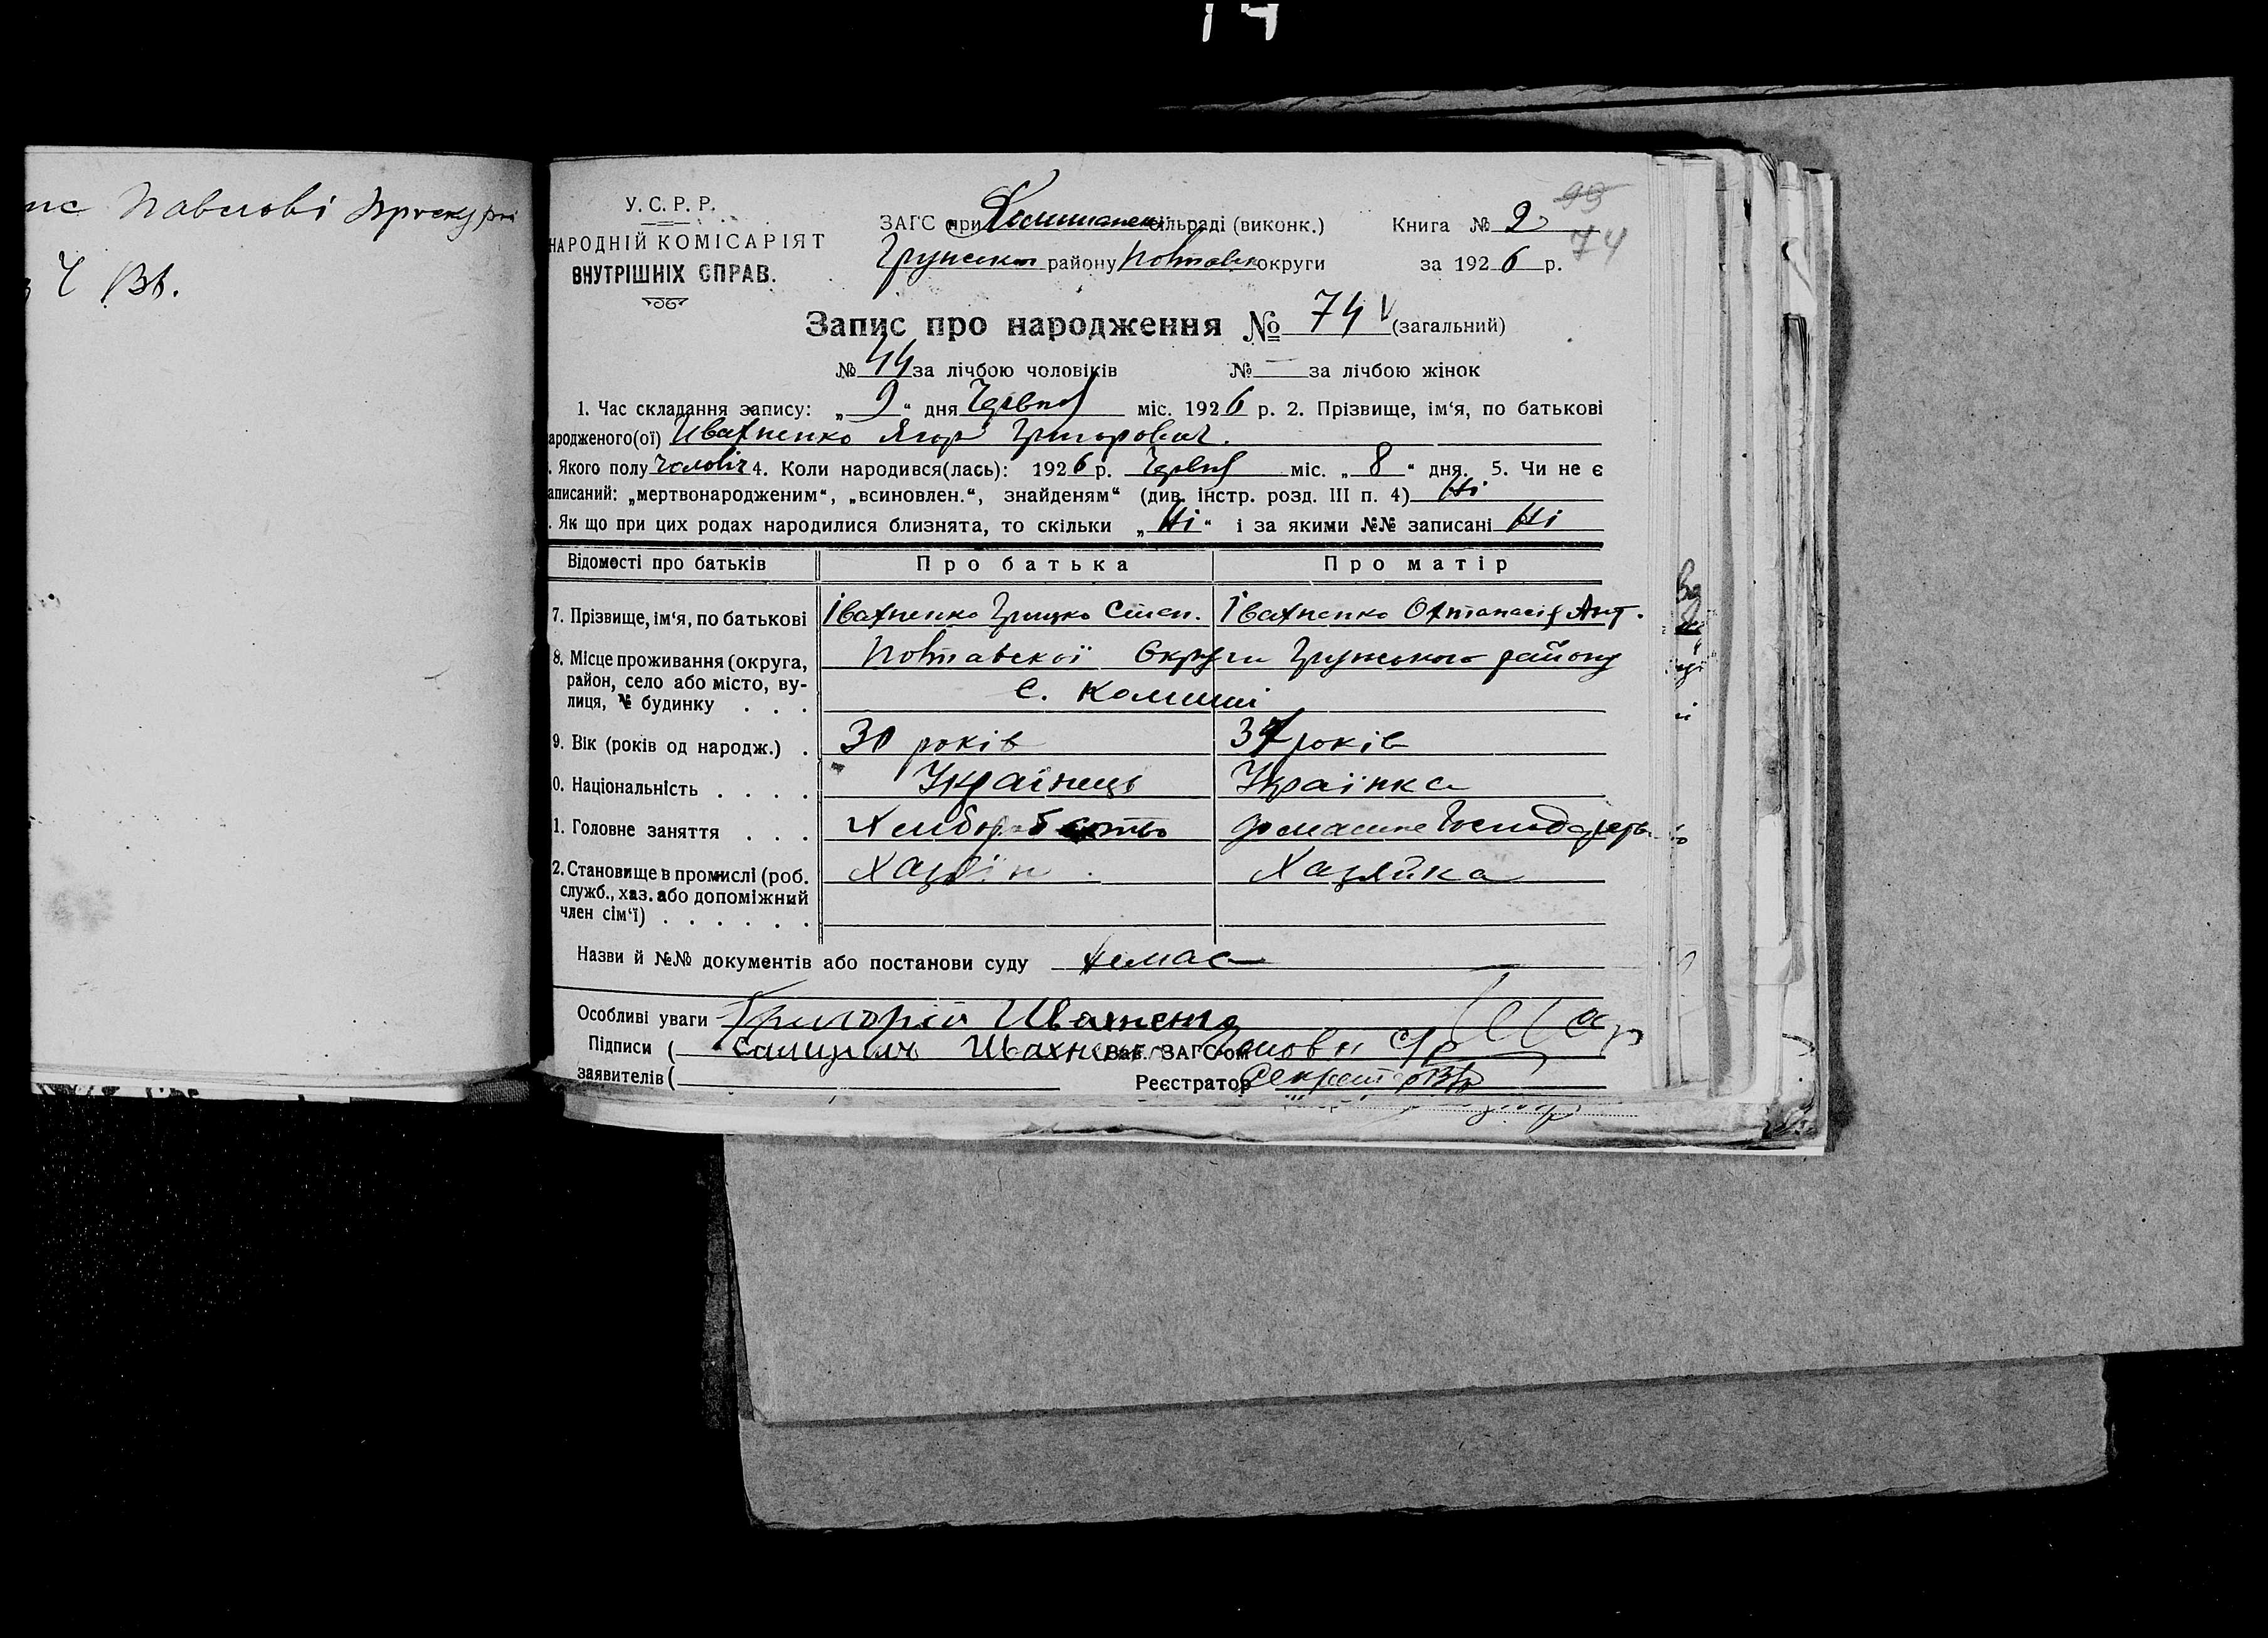 14
Павлові
Вд.
У. С. Р. Р.
НАРОДНІЙ КОМІСАРІЯТ
ВНУТРІШНІХ СПРАВ.
ЗАГС при сільраді (виконк.)
Грунськ району Полтавськ округи
Книга № 2
за 1926 р.
93
74
Запис про народження № 74 (загальний)
№ 44 за лічбою чоловіків № — за лічбою жінок
1. Час складання запису: „ 9 “ дня Червня міс. 1926 р. 2. Прізвище, ім‘я, по батькові
ародженого(ої) Ивахненко Ягор Григорович.
. Якого полу Чоловіч 4. Коли народився(лась): 1926 р. Червня міс. „ 8 “ дня. 5. Чи не є
аписаний: „мертвонародженим“, „всиновлен.“, знайденям“ (див. інстр. розд. III п. 4) Ні
. Як що при цих родах народилися близнята, то скільки „ Ні “ і за якими №№ записані Ні
Відомості про батьків Про батька Про матір
7. Прізвище, ім‘я, по батькові Івахненко Грицко Степ. Івахненко Ант.
8. Місце проживання (округа, район, село або місто, вулиця, № будинку . . . Полтавскої Округи Грунського району
с. Комиші
9. Вік (років од народж.) . 30 років 37 років
0. Національність . . . . Українець Українка
1. Головне заняття . . . Хліборобство домашне Господарств
2. Становище в промислі (роб. служб., хаз. або допоміжний член сім‘ї) . . . . . . Хазяїн Хазяйка
Назви й №№ документів або постанови суду немає
Особливі уваги Григорій Ивахненко
Підписи ( Ивахненко Зав. ЗАГС‘ом Голова с/р
заявителів ( Реєстратор Секретар